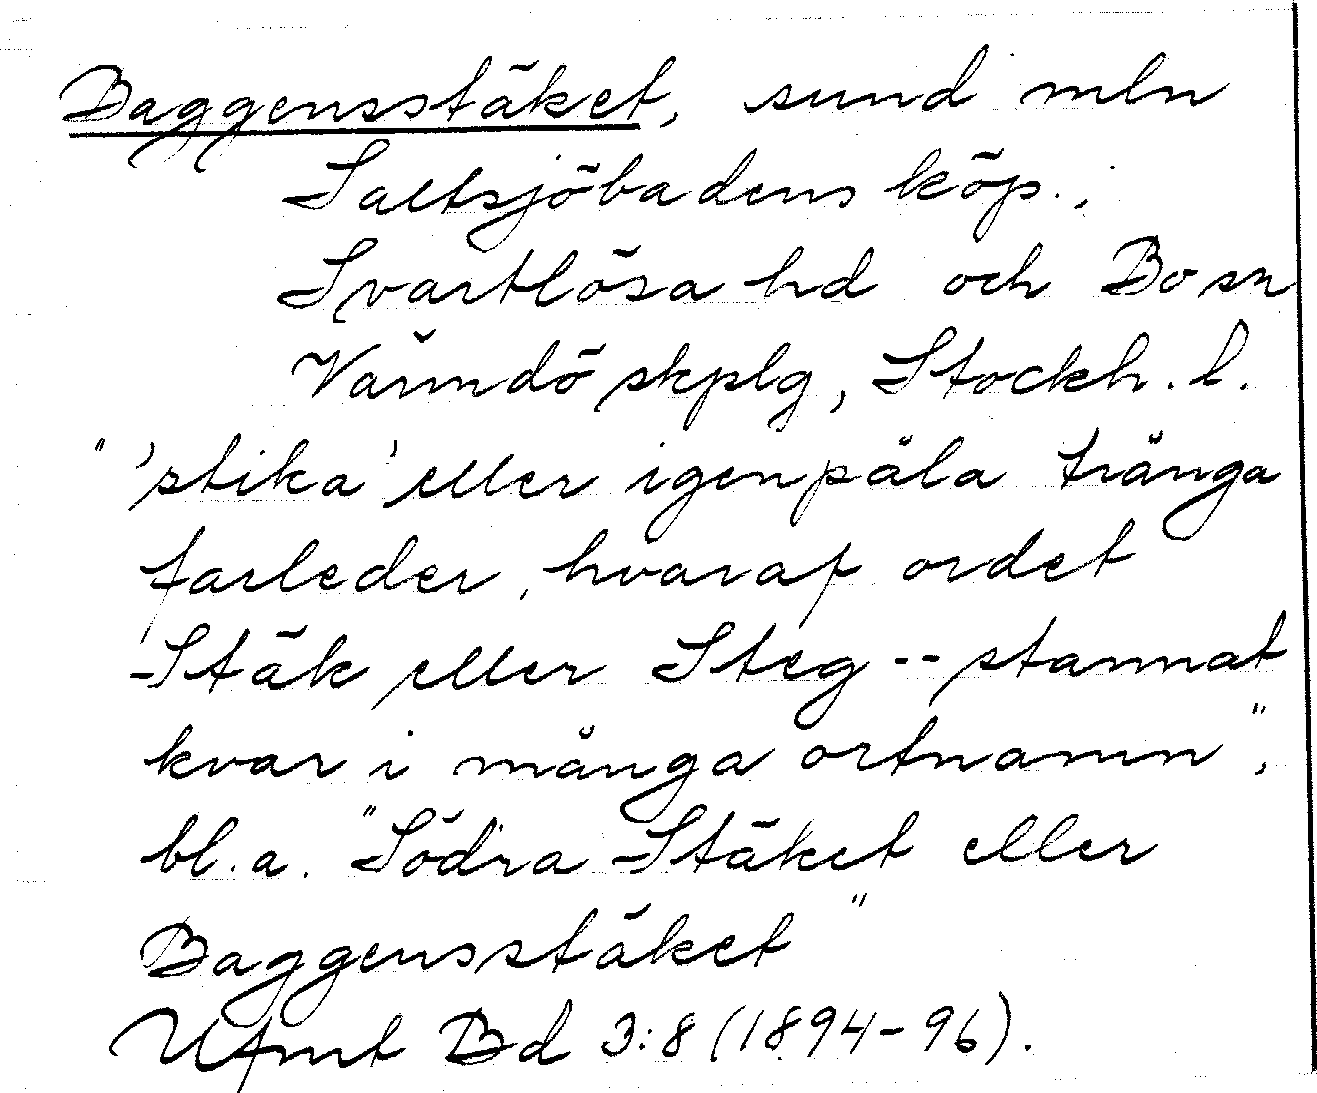 Baggensstäket, sund mln
Saltsjöbadens köp.,
Svartlösa hd och Bo sn
Värmdö skplg, Stockh. l.
" 'stika' eller igenpåla trånga
farleder, hvaraf ordet
Stäk eller Steg -- stannat
kvar i många ortnamn",
bl.a. "Södra Stäket eller
Baggensstäket"
Ufmt Bd 3:8 (1894-96).